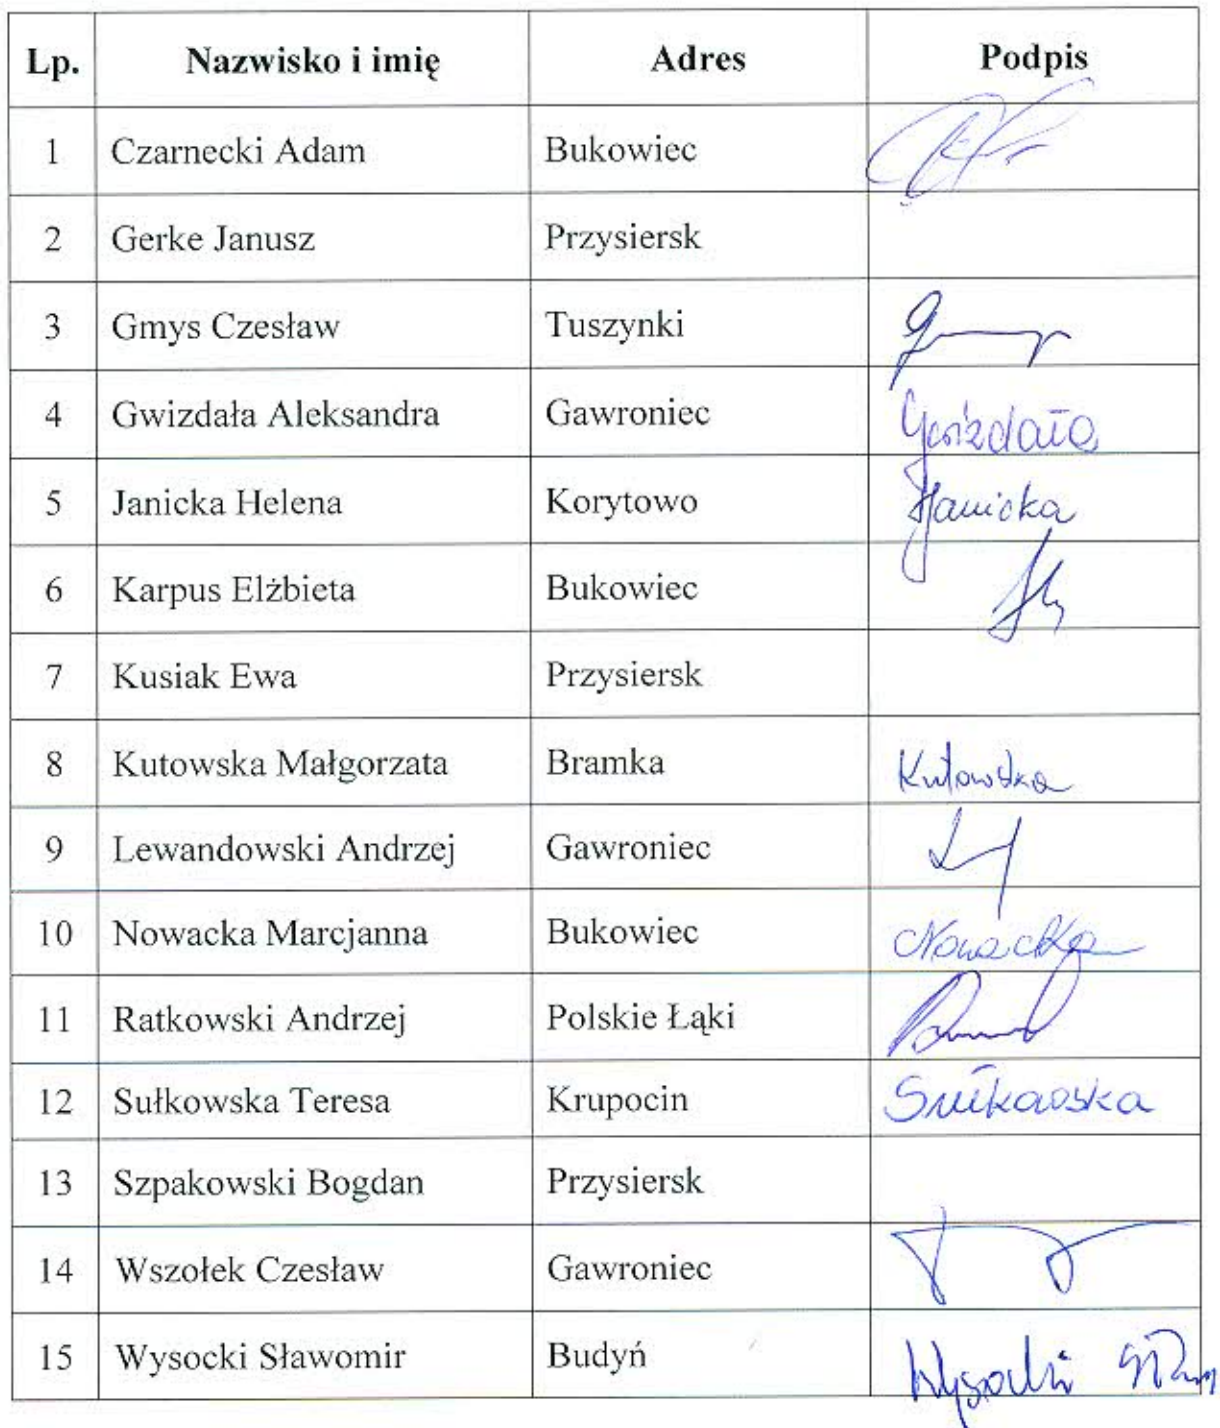 Lp. Nazwisko i imię Adres Podpis
1 Czarnecki Adam Bukowiec
2 Gerke Janusz Przysiersk
3 Gmys Czesław Tuszynki
4 Gwizdała Aleksandra Gawroniec Gwizdała
5 Janicka Helena Korytowo HJanicka
6 Karpus Elżbieta Bukowiec
7 Kusiak Ewa Przysiersk
8 Kutowska Małgorzata Bramka Kutowska
9 Lewandowski Andrzej Gawroniec
10 Nowacka Marcjanna Bukowiec Nowacka
11 Ratkowski Andrzej Polskie Łąki
12 Sułkowska Teresa Krupocin Sułkowska
13 Szpakowski Bogdan Przysiersk
14 Wszołek Czesław Gawroniec
15 Wysocki Sławomir Budyń Wysocki